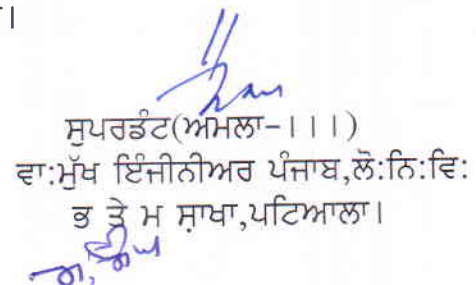 ।
ਸੁਪਰਡੰਟ(ਅਮਲਾ-।।।)
ਵਾ:ਮੁੱਖ ਇੰਜੀਨੀਅਰ ਪੰਜਾਬ,ਲੋ:ਨਿ:ਵਿ:
ਭ ਤੇ ਮ ਸ਼ਾਖਾ,ਪਟਿਆਲਾ।